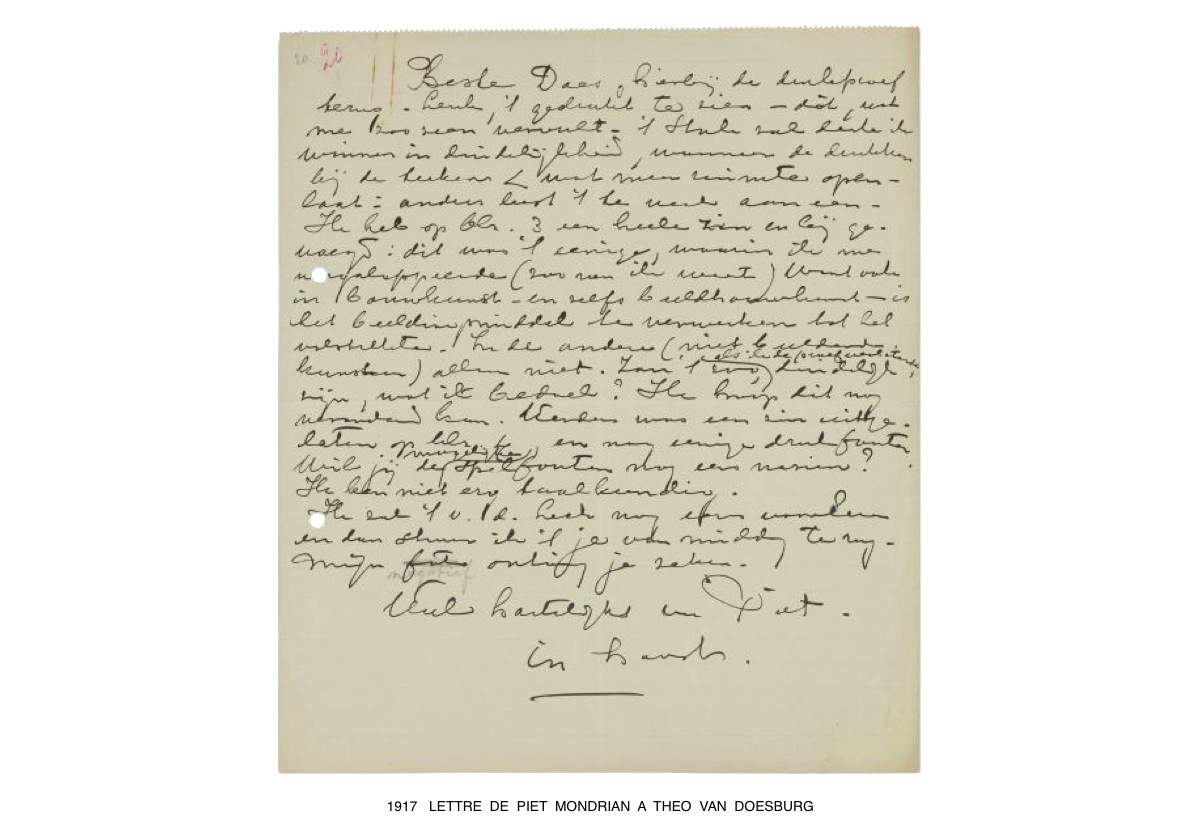 20 20
Beste Does, hierbij de drukproef
terug. Leuk, 't gedrukt te zien – dat, wat
me zoo zeer vervult – 't Stuk zal denk ik
winnen in duidelijkheid, wanneer de drukker
bij de teekens L wat meer ruimte open-
laat: anders leest 't te veel aaneen.
Ik heb op blz. 3 een heele zin er bij ge-
voegd: dit was 't eenige, waarin ik me
(zoo ver ik weet) Want ook
in bouwkunst – en zelfs beeldhouwkunst – is
het beeldingsmiddel te verwerken tot het
In de andere (niet beeldende
kunsten) allen niet. Zou 't zoo, als in de proef verbeterde, duidelijk
zijn, wat ik bedoel? Ik hoop dit nog
veranderd kan. Verders was een zin uitge-
laten op blz. en nog eenige drukfouten.
Wil jij de mogelijke spelfouten nog eens nazien?
Ik ben niet erg taalkundig.
Ik zal 't v. d. Leck nog eens voorlezen
en dan stuur ik 't je van middag terug.
Mijn foto negatief ontving je zeker.
Veel hartelijks van Piet.
in haast.
1917 LETTRE DE PIET MONDRIAN A THEO VAN DOESBURG